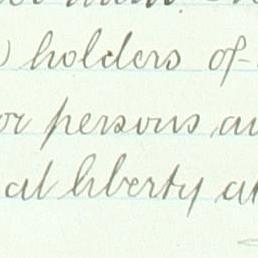 ) holders of
or persons
at liberty at